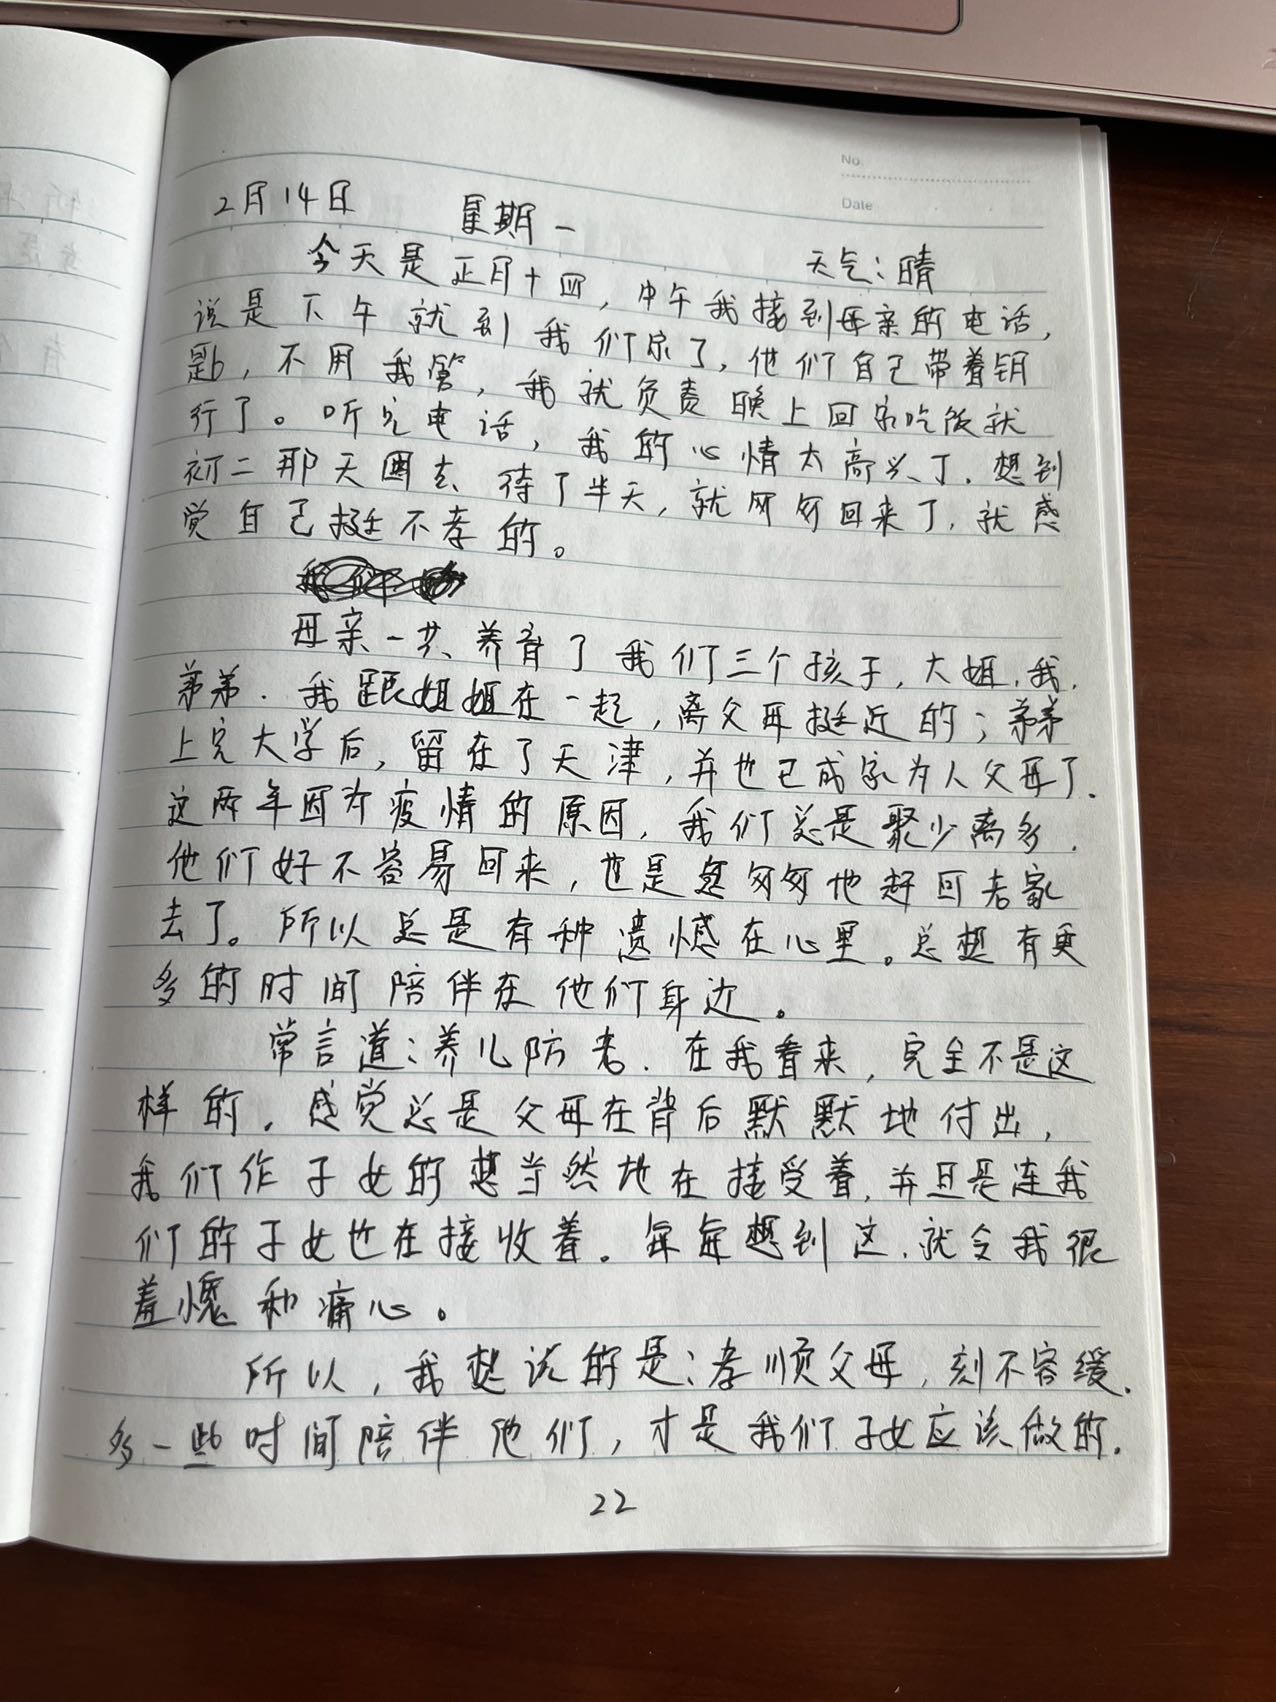 No.
Date
2月14日 星期一 天气:晴
今天是正月十四,中午我接到母亲的电话,
说是下午就到我们家了,他们自己带着钥
匙,不用我管,我就负责晚上回家吃饭就
行了。听完电话,我的心情太高兴了.想到
初二那天回去待了半天,就匆匆回来了,就感
觉自己挺不孝的。
母亲一共养育了我们三个孩子,大姐,我,
弟弟.我跟姐姐在一起,离父母挺近的;弟弟
上完大学后,留在了天津,并也已成家为人父母了.
这两年因为疫情的原因,我们总是聚少离多.
他们好不容易回来,也是匆匆地赶回老家
去了。所以总是有种遗憾在心里。总想有更
多的时间陪伴在他们身边。
常言道:养儿防老.在我看来,完全不是这
样的.感觉总是父母在背后默默地付出,
我们作子女的想当然地在接受着,并且是连我
们的子女也在接收着。每每想到这,就令我很
羞愧和痛心。
所以,我想说的是:孝顺父母,刻不容缓.
多一些时间陪伴他们,才是我们子女应该做的.
22